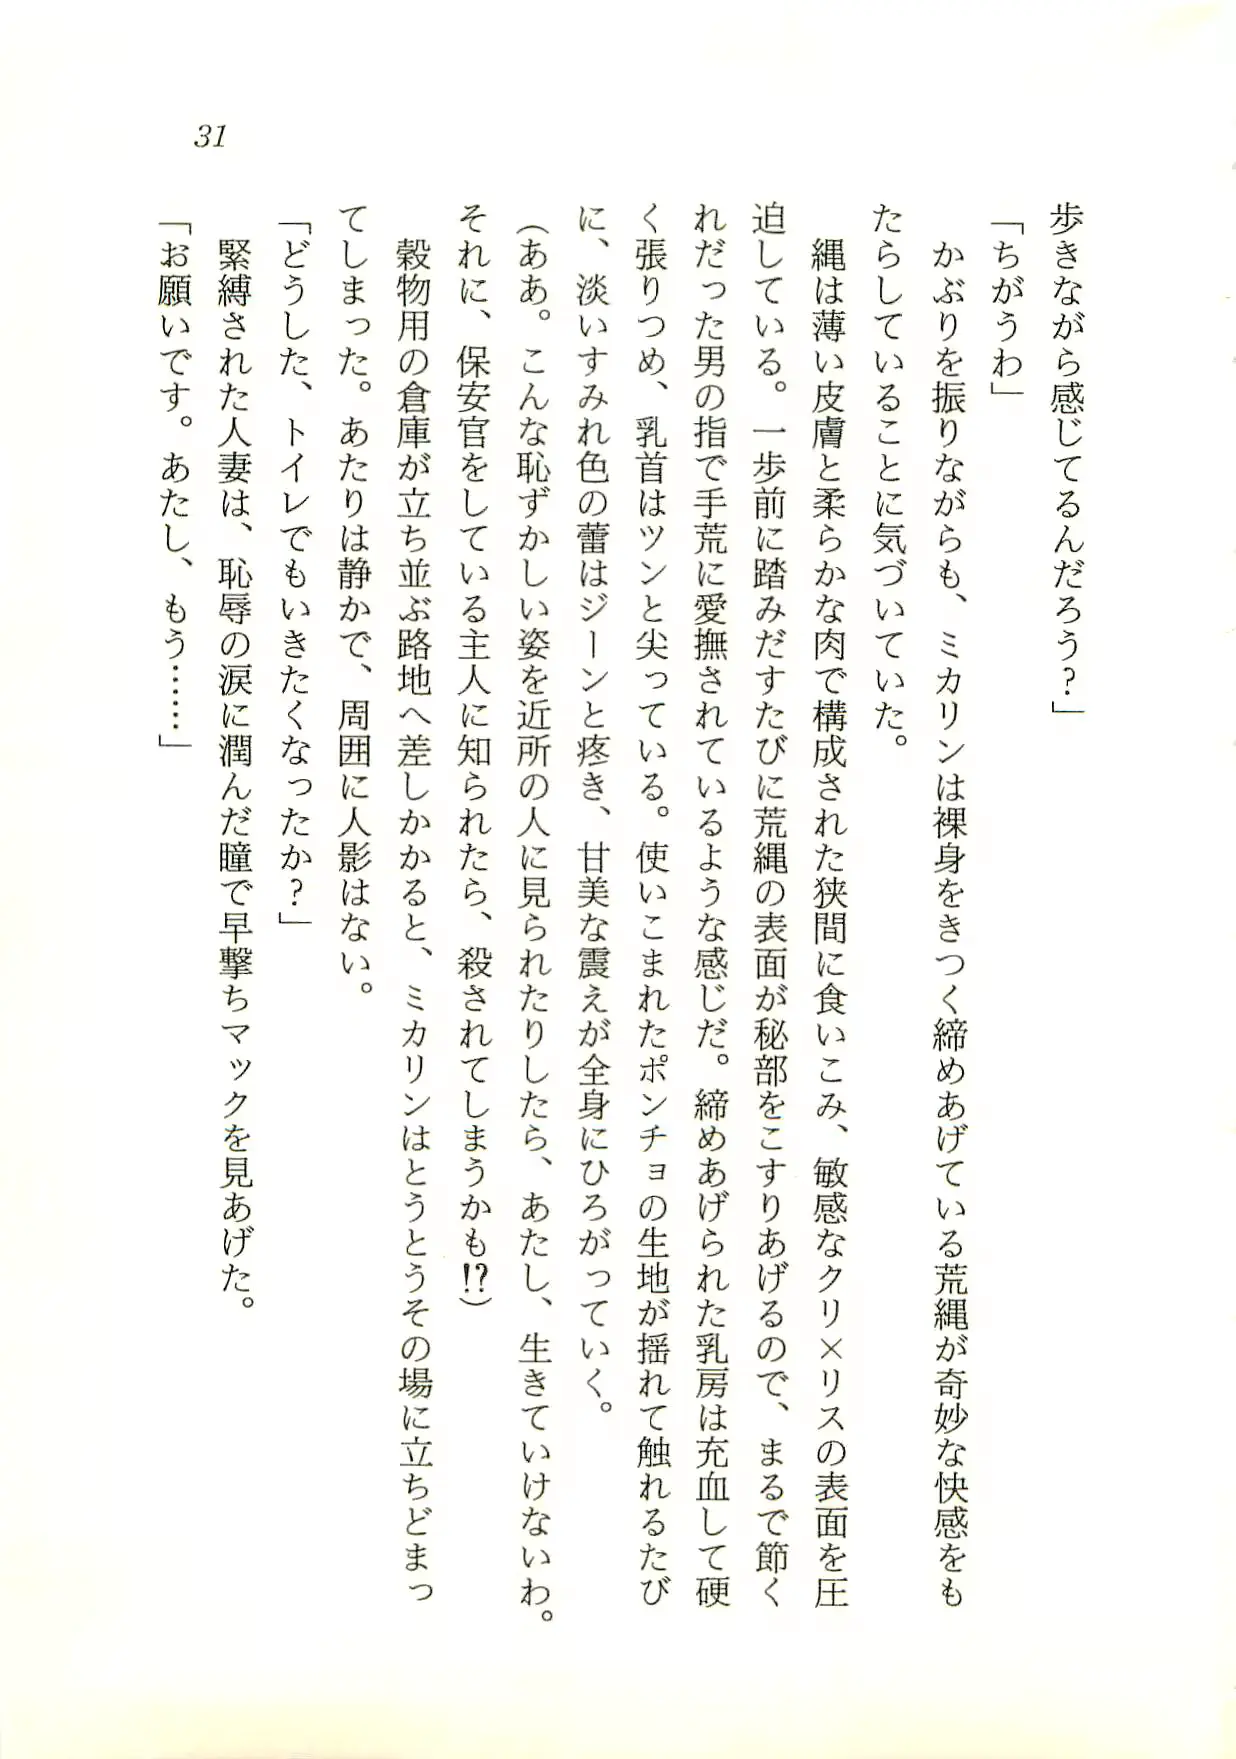 31
歩きながら感じてるんだろう?」
「ちがうわ」
かぶりを振りながらも、ミカリンは裸身をきつく締めあげている荒縄が奇妙な快感をも
たらしていることに気づいていた。
縄は薄い皮膚と柔らかな肉で構成された狭間に食いこみ、敏感なクリ×リスの表面を圧
迫している。一歩前に踏みだすたびに荒縄の表面が秘部をこすりあげるので、まるで節く
れだった男の指で手荒に愛撫されているような感じだ。締めあげられた乳房は充血して硬
く張りつめ、乳首はツンと尖っている。使いこまれたポンチョの生地が揺れて触れるたび
に、淡いすみれ色の蕾はジーンと疼き、甘美な震えが全身にひろがっていく。
(ああ。こんな恥ずかしい姿を近所の人に見られたりしたら、あたし、生きていけないわ。
それに、保安官をしている主人に知られたら、殺されてしまうかも!?)
穀物用の倉庫が立ち並ぶ路地へ差しかかると、ミカリンはとうとうその場に立ちどまっ
てしまった。あたりは静かで、周囲に人影はない。
「どうした、トイレでもいきたくなったか?」
緊縛された人妻は、恥辱の涙に潤んだ瞳で早撃ちマックを見あげた。
「お願いです。あたし、もう……」